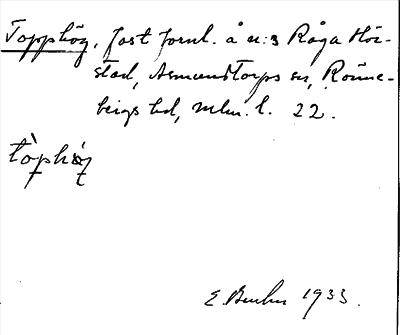 Topphög, fast fornl. å n:3 Råga Hör-
stad, Asmundtorps sn, Rönne-
bergs hd, Mlm. l. 22.
tòphǿg
E. 1933.